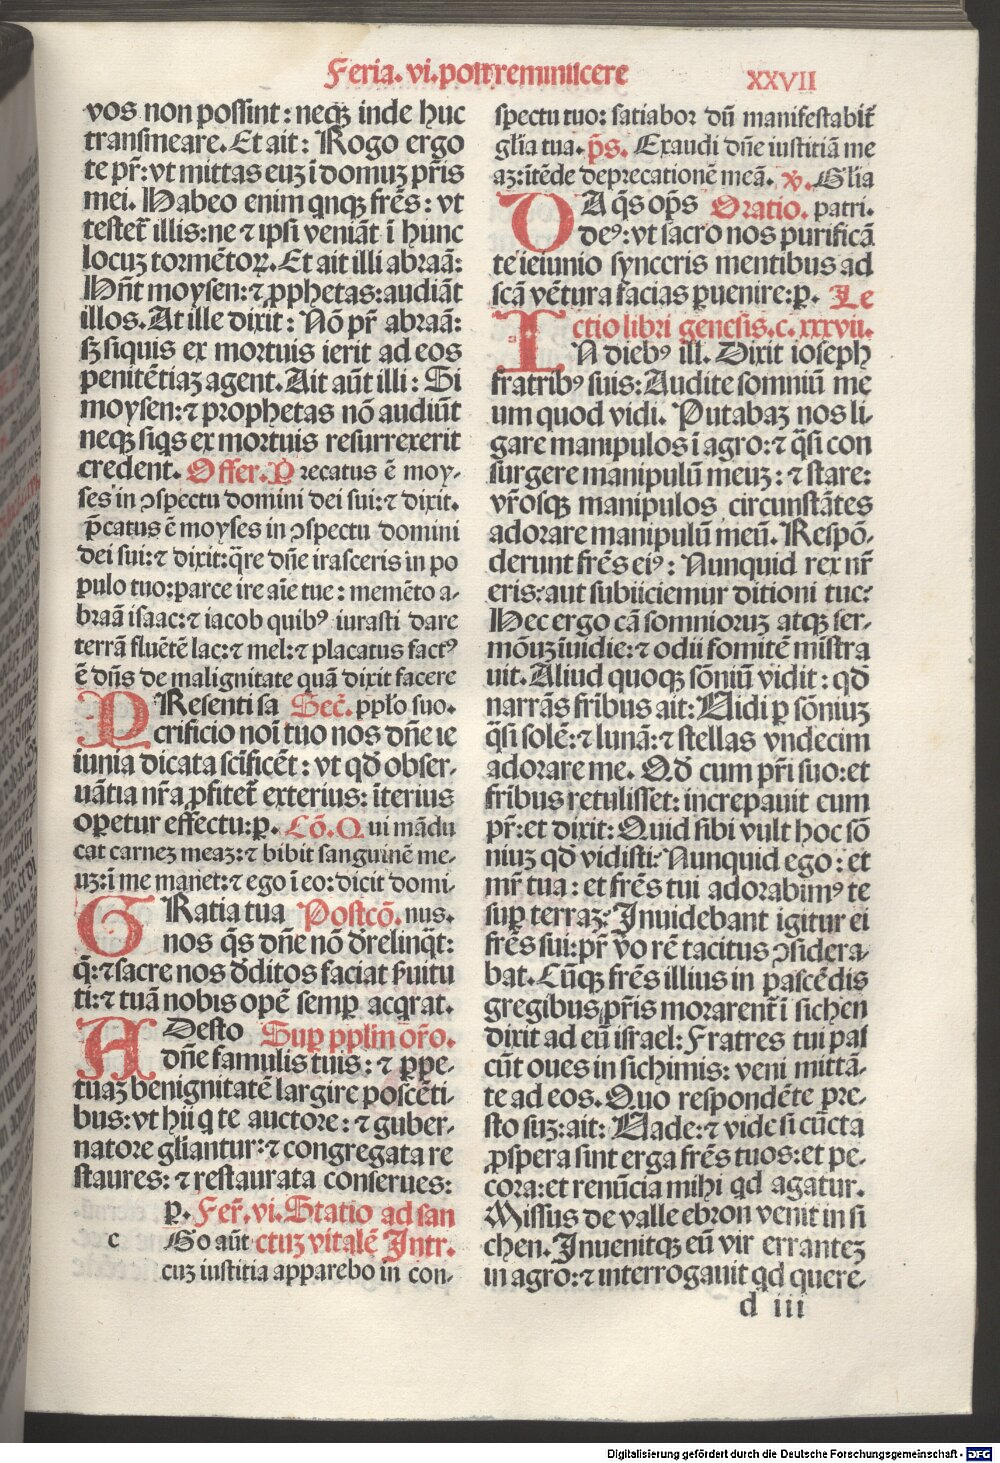 Feria. vi. post reminiscere
XXVII
vos non possint: neqꝫ inde huc
transmeare. Et ait: Rogo ergo
te pr̄: vt mittas euꝫ ī domuꝫ pr̄is
mei. Habeo enim qnqꝫ frēs: vt
testet᷑ illis: ne ⁊ ipsi veniāt ī hunc
locuꝫ tormētoꝝ. Et ait illi abraā:
Hn̄t moysen: ⁊ ꝓphetas: audiāt
illos. At ille dixit: Nō pr̄ abraā:
sꝫ siquis ex mortuis ierit ad eos
penitētiaꝫ agent. Ait aūt illi: Si
moysen: ⁊ prophetas nō audiūt
neqꝫ siqs ex mortuis resurrexerit
credent. Offer. P recatus ē moy-
ses in ↄspectu domini dei sui: ⁊ dixit.
p̄catus ē moyses in ↄspectu domini
dei sui: ⁊ dixit: q̄re dn̄e irasceris in po
pulo tuo: parce ire aīe tue: memēto a-
braā isaac: ⁊ iacob quibꝰ iurasti dare
terrā fluētē lac: ⁊ mel: ⁊ placatus factꝰ
ē dn̄s de malignitate quā dixit facere
PResenti sa Sec̄. pplo suo.
crificio noī tuo nos dn̄e ie
iunia dicata scīficēt: vt qd obser-
uātia nr̄a ꝓfitet᷑ exterius: īterius
operetur effectu: ꝑ. Cō. Q ui mādu
cat carneꝫ meaꝫ: ⁊ bibit sanguinē me-
uꝫ: ī me manet: ⁊ ego ī eo: dicit domi-
GRatia tua Postcō. nus.
nos q̄s dn̄e nō d̄relinq̄t:
q̄: ⁊ sacre nos d̄ditos faciat ẜuitu
ti: ⁊ tuā nobis opē semꝑ acqrat.
ADesto Suꝑ pplm or̄o.
dn̄e famulis tuis: ⁊ ꝑpe-
tuaꝫ benignitatē largire poscēti-
bus: vt hii q te auctore: ⁊ guber-
natore gliantur: ⁊ congregata re
staures: ⁊ restaurata conserues:
ꝑ. Fer̄. vi. Statio ad san
c Go aūt ctuꝫ vitalē Intr.
cuꝫ iustitia apparebo in con-
spectu tuo: satiabor dū manifestabit᷑
glia tua. p̄s. Exaudi dn̄e iustitiā me
aꝫ: ītēde deprecationē meā. v̄. Glia
DA q̄s op̄s Oratio. patri.
deꝰ: vt sacro nos purificā
te ieiunio synceris mentibus ad
scā vētura facias ꝑuenire: ꝑ. Le
ctio libri genesis. c. xxxvii.
IN diebꝰ ill. Dixit ioseph
fratribꝰ suis: Audite somniū me
um quod vidi. Putabaꝫ nos li-
gare manipulos ī agro: ⁊ q̄si con
surgere manipulū meuꝫ: ⁊ stare:
vr̄osqꝫ manipulos circunstātes
adorare manipulū meū. Respō-
derunt frēs eiꝰ: Nunquid rex nr̄
eris: aut subiiciemur ditioni tue?
Hec ergo cā somnioruꝫ atqꝫ ser-
mōuꝫ īuidie: ⁊ odii fomitē mīstra
uit. Aliud quoqꝫ sōniū vidit: qd
narrās fribus ait: Uidi ꝑ sōniuꝫ
q̄si solē: ⁊ lunā: ⁊ stellas vndecim
adorare me. Qd cum pr̄i suo: et
fribus retulisset: increpauit eum
pr̄: et dixit: Quid sibi vult hoc sō
niuꝫ qd vidisti? Nunquid ego: et
mr̄ tua: et frēs tui adorabimꝰ te
suꝑ terraꝫ? Inuidebant igitur ei
frēs sui: pr̄ ꝟo rē tacitus ↄsidera-
bat. Cūqꝫ frēs illius in pascēdis
gregibus pr̄is morarent᷑ ī sichen
dixit ad eū israel: Fratres tui pas
cūt oues in sichimis: veni mittā-
te ad eos. Quo respondēte pre-
sto suꝫ: ait: Uade: ⁊ vide si cūcta
ꝓspera sint erga frēs tuos: et pe-
cora: et renūcia mihi qd agatur.
Missus de valle ebron venit in si
chen. Inuenitqꝫ eū vir erranteꝫ
in agro: ⁊ interrogauit qd quere-
d iii
Digitalisierung gefördert durch die Deutsche Forschungsgemeinschaft - DFG